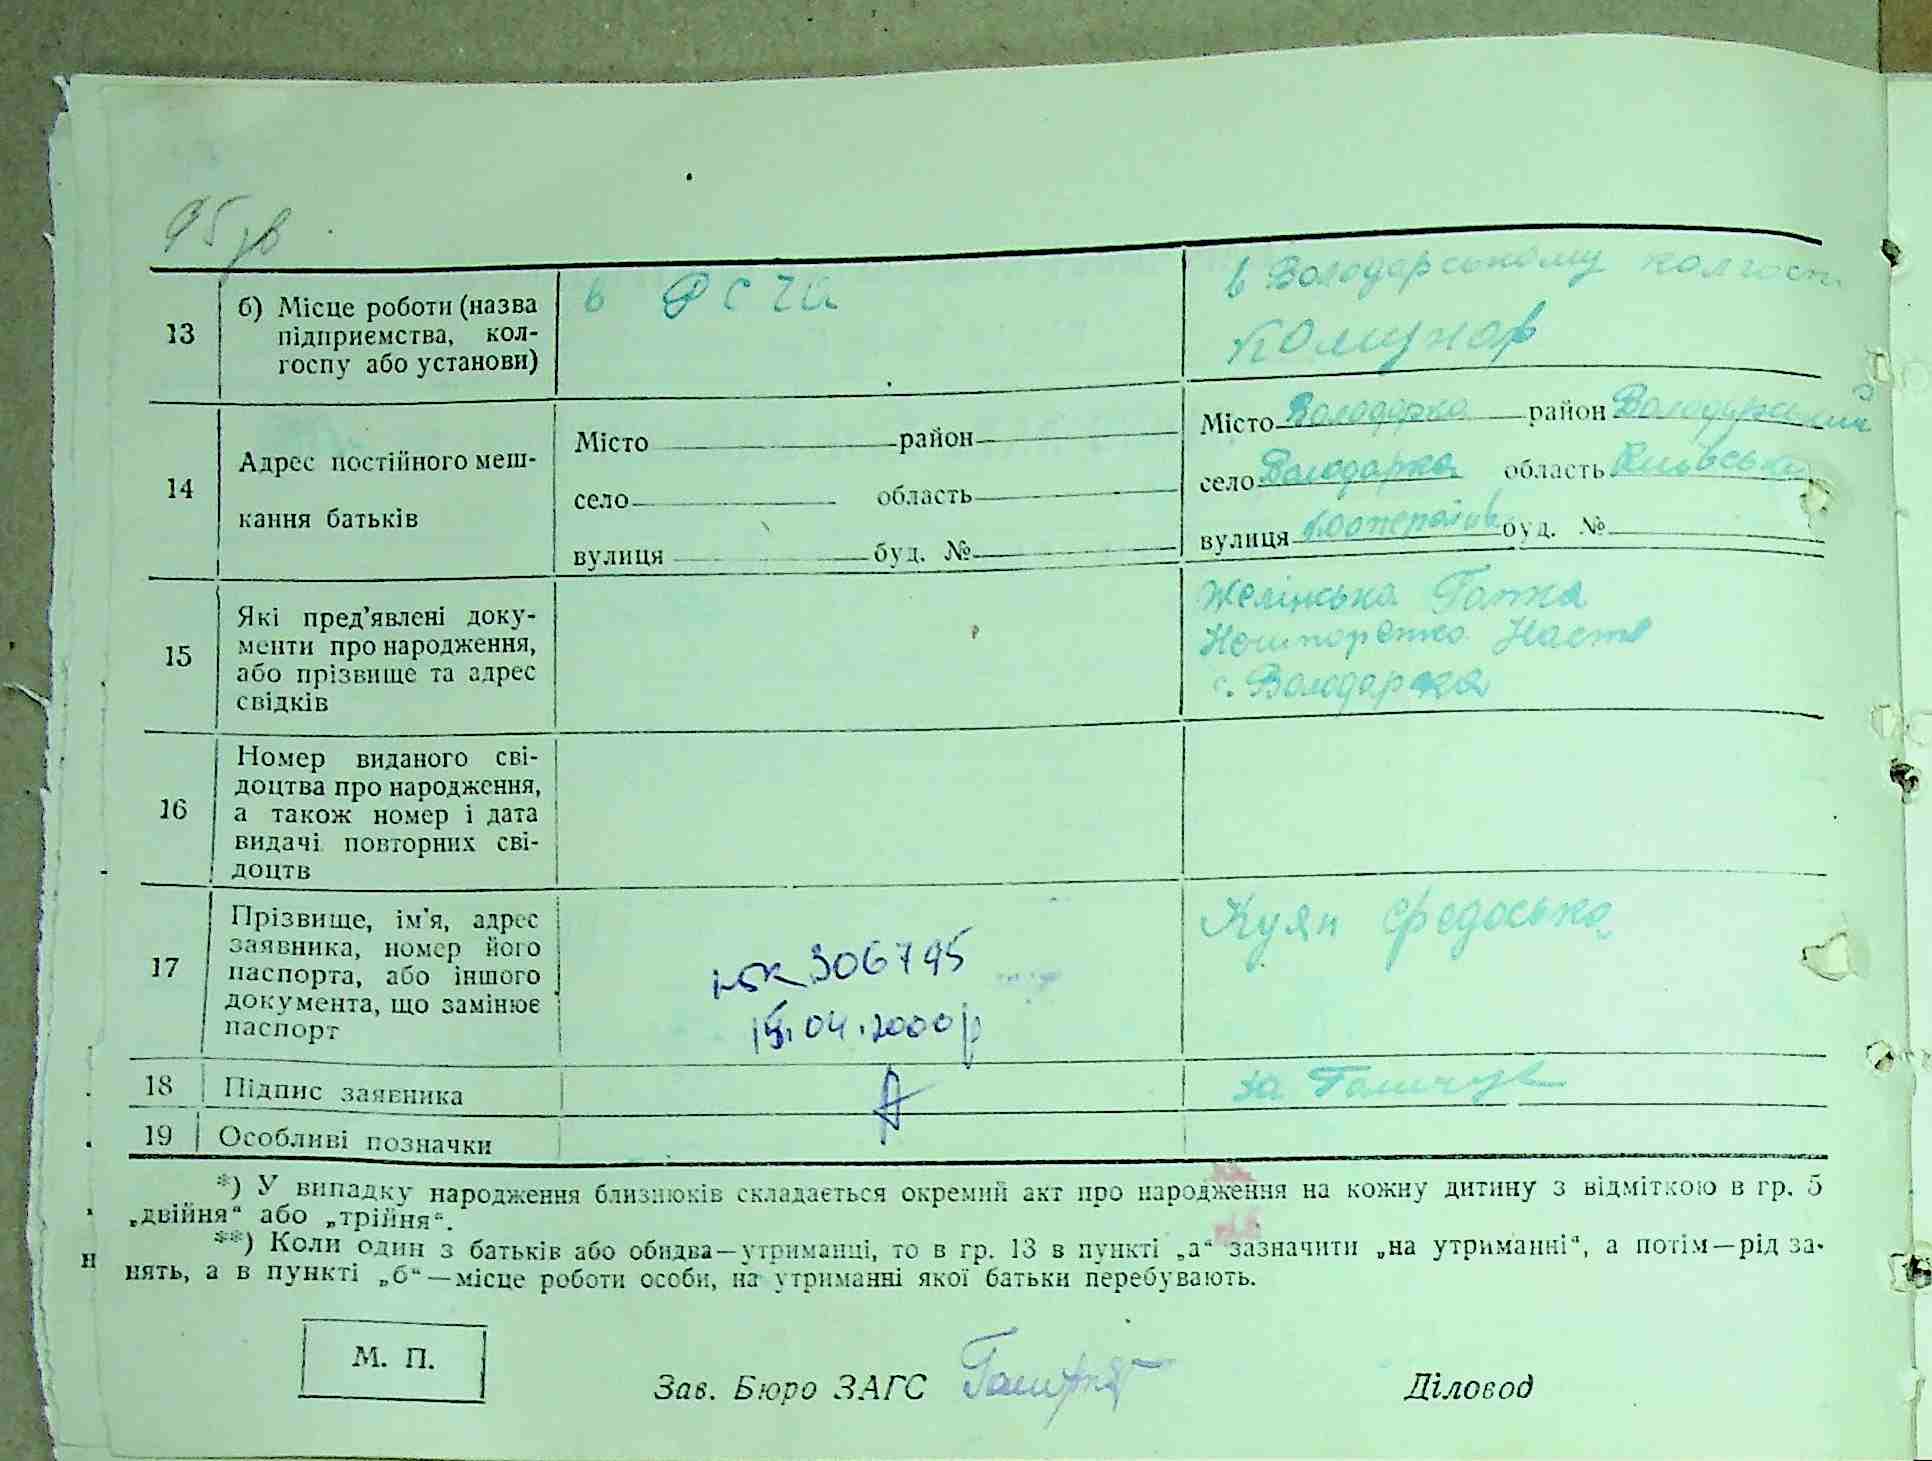 95 зв
13
б) Місце роботи (назва
підприємства, кол-
госпу або установи)
в РСЧА
в Володарському колгосп
Комунар
14
Адрес постійного меш-
кання батьків
Місто район
село область
вулиця буд. №
Місто Володарка район Володарський
село Володарка область Київська
вулиця буд. №
15
Які пред'явлені доку-
менти про народження,
або прізвище та адрес
свідків
Желінська Гапка
Нешпоренко Настя
с. Володарка
16
Номер виданого сві-
доцтва про народження,
а також номер і дата
видачі повторних сві-
доцтв
17
Прізвище, ім'я, адрес
заявника, номер його
паспорта, або іншого
документа, що замінює
паспорт
306795
04.2000р
Куян Федоська
18
Підпис заявника
за
19
Особливі позначки
*) У випадку народження близнюків складається окремий акт про народження на кожну дитину з відміткою в гр. 5
„двійня“ або „трійня“.
**) Коли один з батьків або обидва—утриманці, то в гр. 13 в пункті „а“ зазначити „на утриманні“, а потім—рід за-
нять, а в пункті „б“—місце роботи особи, на утриманні якої батьки перебувають.
н
М. П.
Зав. Бюро ЗАГС
Діловод